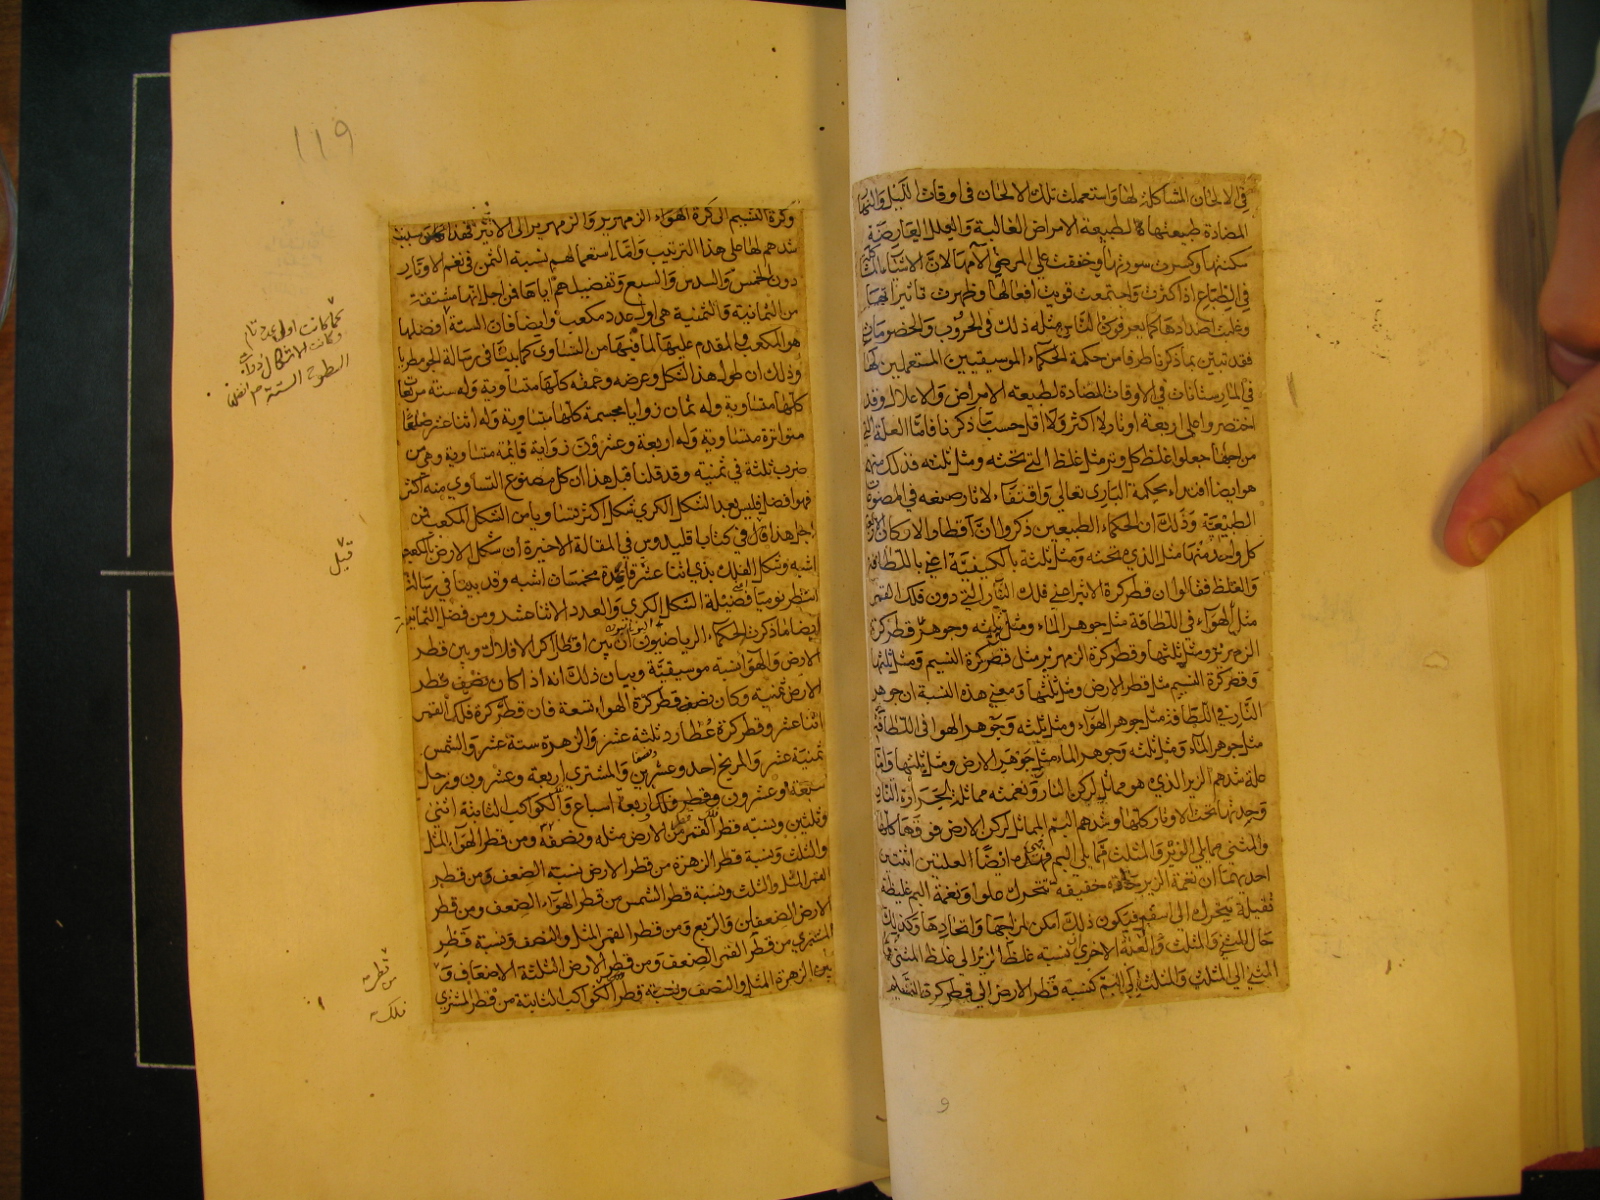 في الالحان المشاكلة لها واستعملت تلك الالحان في اوقات الليل والنهار
المضادة طبيعتها لطبيعة الامراض الغالبة والعلل العارضة
سكنتها وكسرت سورتها وخففت على المرضى آلامها لان الاشياء
في الطباع اذا كثرت واجتمعت قويت افعالها وظهرت تاثيراتها
وغلبت اضدادها كما يعرفون الناس مثله ذلك في الحروب والخصومات
فقد تبين بما ذكرنا طرفا من حكمة الحكماء الموسيقيين المستعملين لها
في المارستانات في الاوقات المضادة لطبيعة الامراض والاعلال وقد
اختصروا على اربعة اوتار لا اكثر ولا اقل حسب ما ذكرنا فاما العلة التي
من اجلها جعلوا غلظ كل وتر مثل غلظ الذي تحته ومثل ثلثه فذلك منهم
هو ايضا اقتداء بحكمة الباري تعالى واقتفاء لاثار صنعه في المصنوعات
الطبيعية وذلك ان الحكماء الطبيعيين ذكروا ان اقطار الاركان
كل واحد منها مثل الذي تحته ومثل ثلثه بالكيفية اعني باللطافة
والغلظ فقالوا ان قطر كرة الاثير اعني فلك النار التي دون فلك القمر
مثل الهواء في اللطافة مثل جوهر الماء ومثل ثلثه وجوهر قطر كرة
الزمهرير ومثل ثلثها وقطر كرة الزمهرير مثل قطر كرة النسيم ومثل ثلثها
وقطر كرة النسيم مثل قطر الارض ومثل ثلثها ومعنى هذه النسبة ان جوهر
النار في اللطافة مثل جوهر الهواء ومثل ثلثه وجوهر الهوا في اللطافة
مثل جوهر الماء ومثل ثلثه وجوهر الماء مثل جوهر الارض ومثل ثلثها واما
علة شدهم الزير الذي هو مماثل لركن النار ونغمته مماثلة لحرارة النار
وحدتها تحت الاوتار كلها وشدهم البم المماثل لركن الارض فوقها كلها
والمثنى مما يلي الزير والمثلث مما يلي البم ايضا لعلتين اثنتين
احديهما ان نغمة الزير حادة خفيفة تتحرك علوا ونغمة البم غليظة
ثقيلة تتحرك الى اسفل فيكون ذلك امكن لمزاجها واتحادها وكذلك
حال المثنى والمثلث والعلة الاخرى ان نسبة غلظ الزير الى غلظ المثنى
المثنى الى المثلث والمثلث الى البم كنسبة قطر الارض الى قطر كرة النسيم
١١٩
وكرة النسيم الى كرة الهواء الزمهرير والزمهرير الى الاثير فهذا سبب
شدهم لها على هذا الترتيب واما استعمالهم نسبة الثمن في نغم الاوتار
دون الخمس والسدس والسبع وتفضيلهم اياها فمن اجل انها مشتقة
من الثمانية والثمنية هي اول عدد مكعب وايضا فان الستة افضلها
هو المكعب والمقدم عليها لما فيها من التساوي كما بينا في رسالة الجومطريا
وذلك ان طول هذا الشكل وعرضه وعمقه كلها متساوية وله ستة مربعات
كلها متساوية وله ثمان زوايا مجسمة كلها متساوية وله اثنا عشر ضلعا
متوازية متساوية وله اربعة وعشرون زاوية قائمة متساوية وهي من
ضرب ثلثة في ثمنية وقد قلنا قبل هذا ان كل مصنوع التساوي منه اكثر
فهو افضل فليس بعد الشكل الكري شكل اكثر تساويا من الشكل المكعب فمن
اجل هذا قال في كتاب اقليدس في المقالة الاخيرة ان شكل الارض بالمكعب
اشبه وشكل الفلك بذي اثنا عشر قاعدة مخمسات اشبه وقد بينا في رسالة
اسطرنوميا فضيلة الشكل الكري والعدد الاثنا عشر ومن فضل الثمانية
ايضا ما ذكرت الحكماء الرياضيون ان بين اقطار اكر الافلاك وبين قطر
الارض والهوا نسبة موسيقية وبيان ذلك انه اذا كان نصف قطر
الارض ثمنية وكان نصف قطر كرة الهواء تسعة فان قطر كرة فلك القمر
اثنا عشر وقطر كرة عطارد ثلثة عشر والزهرة ستة عشر والشمس
ثمنية عشر والمريخ احد وعشرين ونصفا والمشتري اربعة وعشرون وزحل
سبعة وعشرون وقطر فلك اربعة اسباع والكواكب الثابتة اثنى
وثلثين ونسبة قطر القمر من الارض مثله ونصفه ومن قطر الهواء المثل
والثلث ونسبة قطر الزهرة من قطر الارض نسبة الضعف ومن قطر
القمر المثل والثلث ونسبة قطر الشمس من قطر الهواء الضعف ومن قطر
الارض الضعفين والربع ومن قطر القمر المثل والنصف ونسبة قطر
المشتري من قطر القمر الضعف ومن قطر الارض الثلثة الاضعاف و
بين الزهرة المثل والنصف ونسبة قطر الكواكب الثابتة من قطر المشتري
كما كانت اول عدد تام
وكانت الاشكال ذوات
السطوح الستة
قبل
من قطرت
فلك